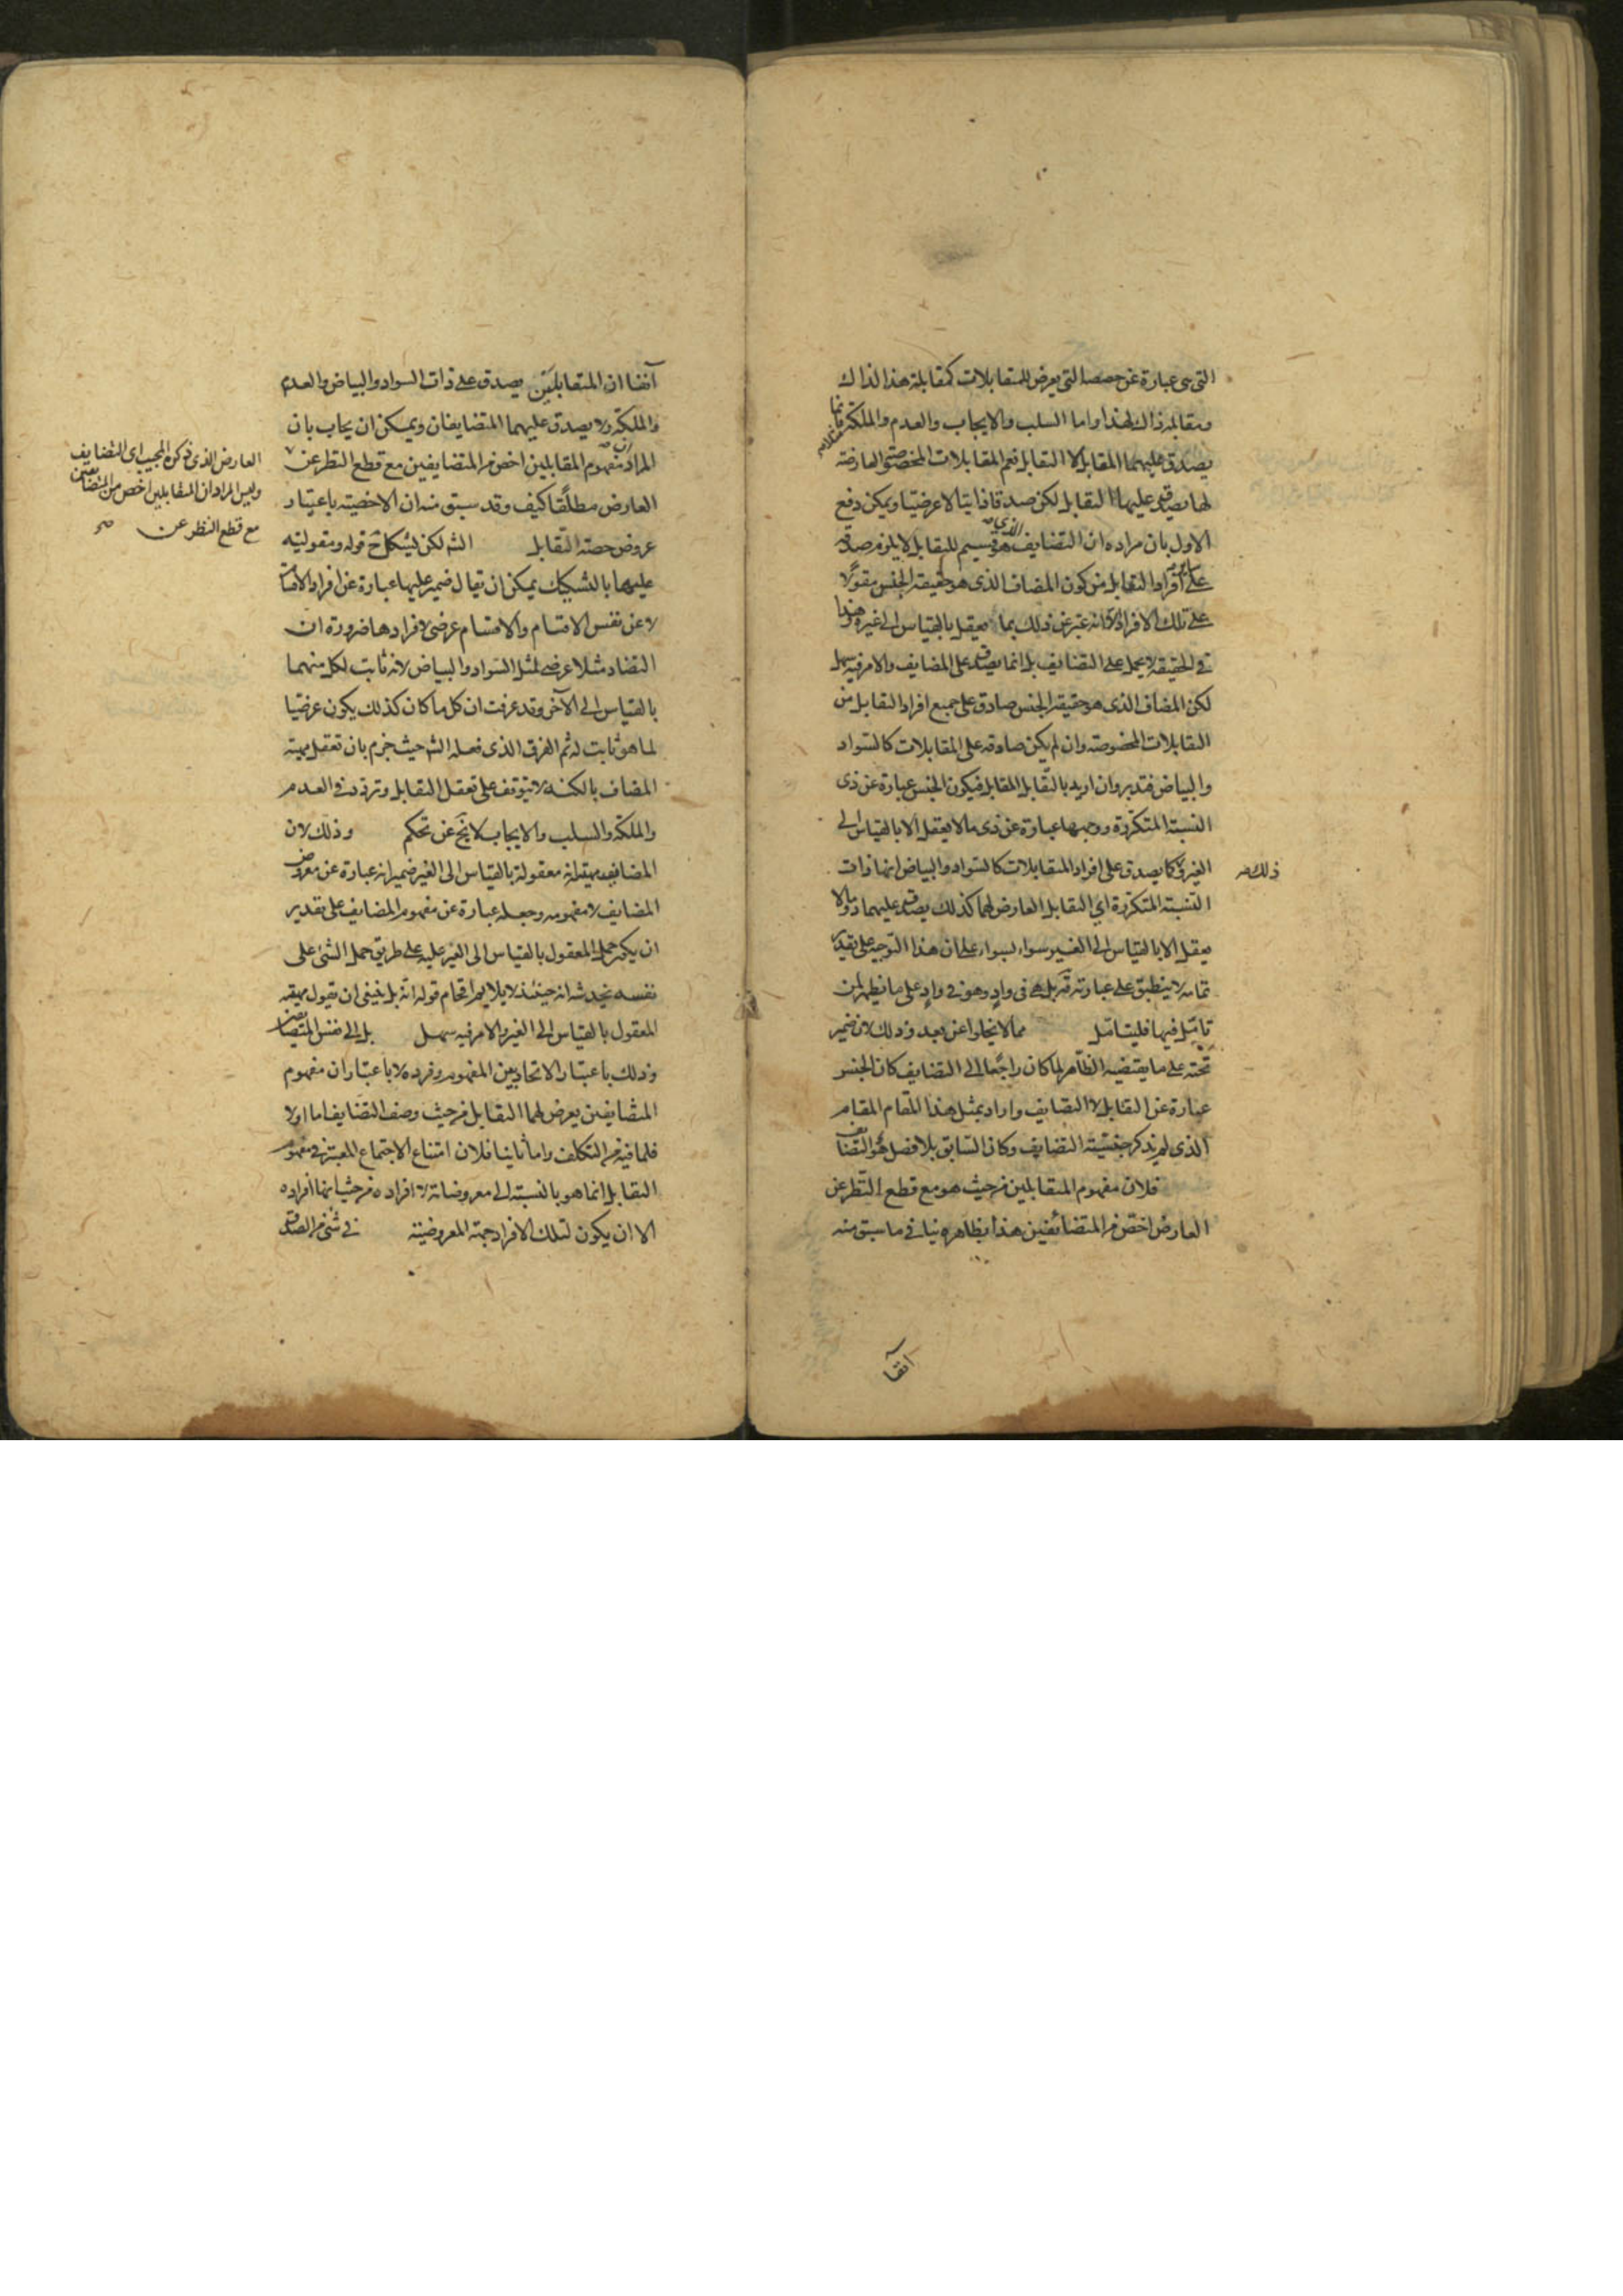 التى هى عبارة عن حصصها التى يعرض للمتقابلات كمقابلة هذا لذاك
ومقابلة ذاك لهذا واما السلب والايجاب والعدم والملكة فانما
يصدق عليهما المقابل لا التقابل نعم المقابلات المخصوصة العارضة
لها يصدق عليها التقابل لكن صدقا ذاتيا لا عرضيا ويمكن دفع
الاول بان مراده ان التضايف الذى هو قسيم للتقابل لا يلزم صدقه
على افراد التقابل من كون المضاف الذى هو حقيقة الجنس مقولا
على تلك الافراد لانه عبر عن ذلك بما يعقل بالقياس الى غيره وهذا
فى الحقيقة لا يحمل على التضايف بل انما يصدق على المضايف والامر فيه سهل
لكن المضاف الذى هو حقيقة الجنس صادق على جميع افراد التقابل من
التقابلات المخصوصة وان لم يكن صادقه على المقابلات كالسواد
والبياض فتدبر وان اريد بالتقابل المقابل فيكون الجنس عبارة عن ذى
النسبة المتكررة ووجهها عبارة عن ذى ما لا يعقل الا بالقياس الى
الغير فكما يصدق على افراد المتقابلات كالسواد والبياض انها ذات
ذلك صح
النسبة المتكررة اى التقابل العارض لهما كذلك يصدق عليهما ذو ما لا
يعقل الا بالقياس الى الغير سواء بسواء على ان هذا التوجيه على تقدير
تمامه لا ينطبق على عبارته قه بل هى فى واد وهو فى واد على ما يظهر لمن
تامل فيها فليتامل مما لا يخلوا عن بعد وذلك لان ضمير
تحته على ما يقتضيه الظاهر لما كان راجعا الى التضايف كان الجنس
عبارة عن التقابل لا التضايف واراد بمثل هذا المقام المقام
الذى لم يذكر جنسية التضايف وكان السابق بلا فصل هو التضايف
فلان مفهوم المتقابلين من حيث هو مع قطع النظر عن
العارض اخص من المتضائفين هذا بظاهره ينافى ما سبق منه
آنفا
آنفا ان المتقابلين يصدق على ذات السواد والبياض والعدم
والملكة ولا يصدق عليهما المتضايفان ويمكن ان يجاب بان
المراد ان مفهوم المقابلين اخص من المتضايفين مع قطع النظر عن
العارض الذى ذكره المجيب اى التضايف
وليس المراد ان المتقابلين اخص من المتضايفين
مع قطع النظر عن صح
العارض مطلقا كيف وقد سبق منه ان الاخصية باعتبار
عروض حصة التقابل الشه لكن يشكل ح قوله ومقوليته
عليهما بالتشكيك يمكن ان يقال ضمير عليها عبارة عن افراد الاقسام
لا عن نفس الاقسام والاقسام عرضى لافرادها ضرورة ان
التضاد مثلا عرضى لمثل السواد والبياض لانه ثابت لكل منهما
بالقياس الى الآخر وقد عرفت ان كل ما كان كذلك يكون عرضيا
لما هو ثابت له ثم الفرق الذى فعله الشه حيث جزم بان تعقل مهية
المضاف بالكنه لا يتوقف على تعقل التقابل وتردد فى العدم
والملكة والسلب والايجاب لا يخ عن تحكم وذلك لان
المضايف مهيته انه معقولة بالقياس الى الغير ضمير انه عبارة عن معروض
المضايف لا مفهومه وجعله عبارة عن مفهوم المضايف على تقدير
ان يكون حمل المعقول بالقياس الى الغير عليه على طريق حمل الشئ على
نفسه يخدشه انه حينئذ لا يلايم اقحام قوله انه بل ينبغى ان يقول مهيته
المعقول بالقياس الى الغير والامر فيه سهل بل الى نفس المتضايفين
وذلك باعتبار الاتحاد بين المفهوم وفرده لا باعتبار ان مفهوم
المتضايفين يعرض لهما التقابل من حيث وصف التضايف اما اولا
فلما فيه من التكلف واما ثانيا فلان امتناع الاجتماع المعتبر فى مفهوم
التقابل انما هو بالنسبة الى معروضاته لا افراده من حيث انها افراده
الا ان يكون لتلك الافراد جهة المعروضية فى شئ من الصادق